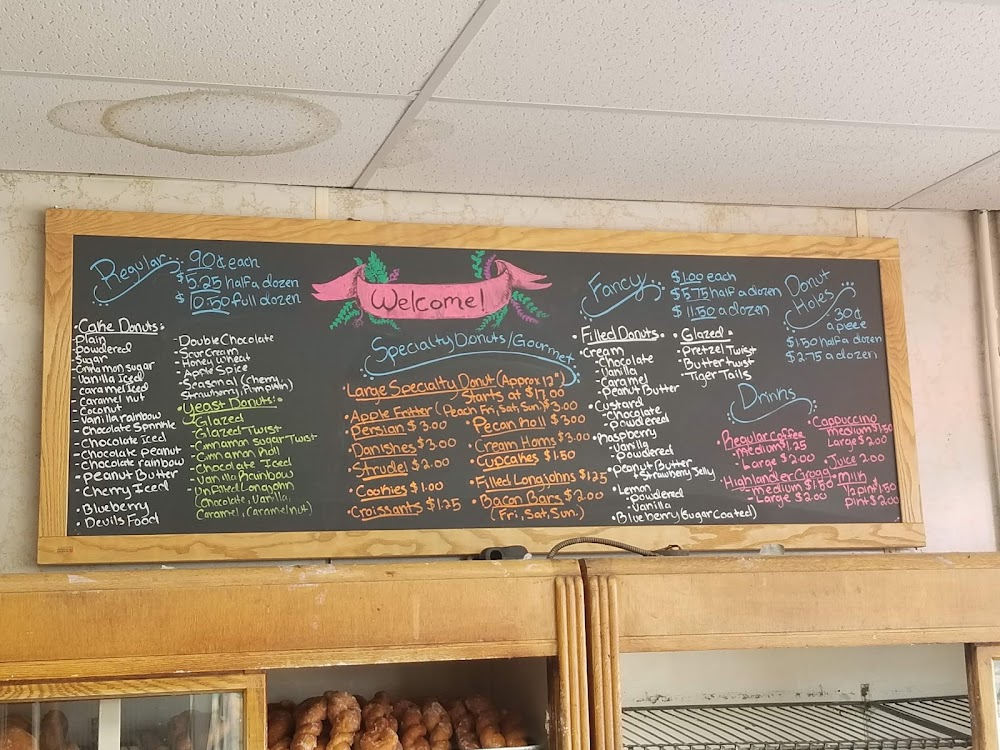 Regular
90¢ each
$5.25 half a dozen
$10.50 full dozen
• Cake Donuts:
- Plain
- Powdered
- Sugar
- Cinnamon sugar
- Vanilla Iced
- Caramel Iced
- Caramel nut
- Coconut
- Vanilla rainbow
- Chocolate Sprinkle
- Chocolate Iced
• Chocolate peanut
- Chocolate rainbow
• Peanut Butter
- Cherry Iced
• Blueberry
• Devils Food
- Double Chocolate
- Sour Cream
- Honey Wheat
- Apple Spice
- Seasonal (Cherry,
Strawberry, Pumpkin)
• Yeast Donuts:
- Glazed
- Glazed Twist
- Cinnamon Sugar Twist
- Cinnamon Roll
- Chocolate Iced
- Vanilla Rainbow
- Unfilled Longjohn
(Chocolate, Vanilla,
Caramel, Caramel nut)
Welcome!
Specialty Donuts/Gourmet
• Large Specialty Donut (Approx 12")
Starts at $17.00
• Apple Fritter (Peach Fri, Sat, Sun) $3.00
• Persian $3.00
• Danishes $3.00
• Strudel $2.00
• Cookies $1.00
• Croissants $1.25
• Pecan Roll $3.00
• Cream Horns $3.00
• Cupcakes $1.50
• Filled Longjohns $1.25
• Bacon Bars $2.00
(Fri, Sat, Sun.)
Fancy
$1.00 each
$5.75 half a dozen
$11.50 a dozen
• Filled Donuts •
• Cream
- Chocolate
- Vanilla
- Caramel
- Peanut Butter
• Custard
- Chocolate
- Powdered
• Raspberry
- Vanilla
- Powdered
• Peanut Butter
- Strawberry Jelly
• Lemon
- Powdered
- Vanilla
• Blueberry (Sugar Coated)
• Glazed •
- Pretzel Twist
- Butter twist
- Tiger Tails
Donut
Holes
30¢
a piece
$1.50 half a dozen
$2.75 a dozen
Drinks
• Regular Coffee
- Medium $1.25
- Large $2.00
• Highlander Grogg
- Medium $1.50
- Large $2.00
• Cappuccino
Medium $1.50
Large $2.00
• Juice 2.00
• Milk
1/2 pint 1.50
pint $2.00